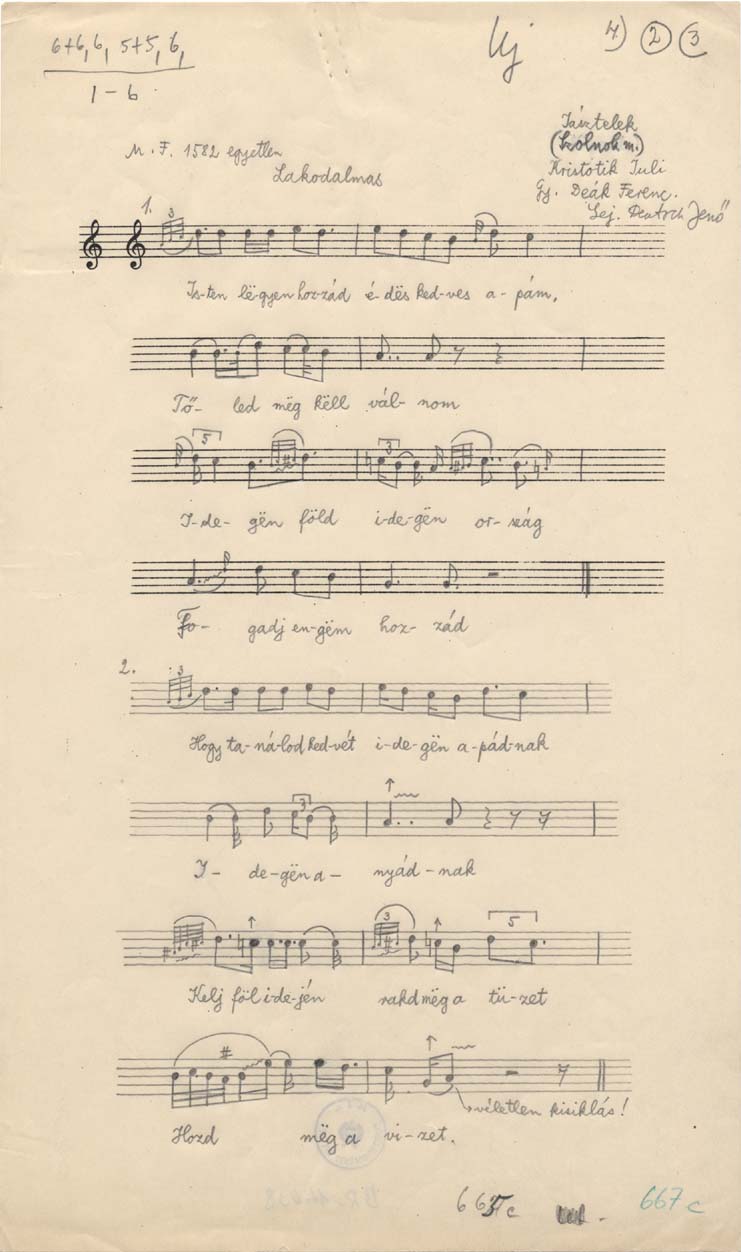 6+6, 6, 5+5, 6,
1-6
Uj
4) 2 3
M. F. 1582 egyetlen
Lakodalmas
Jásztelek
(Szolnok m.)
Kristotik Juli
Gy. Deák Ferenc.
Lej. Deutsch Jenő
1.
3
Is-ten lë-gyen hoz-zád é-dës ked-ves a-pám,
Tő- led mëg këll vál-nom
5 3
I-de-gën föld i-de-gën or-szág
Fo- gadj en-gëm hoz-zád
2.
3
Hogy ta-ná-lod ked-vét i-de-gën a-pád-nak
3
I- de-gën a- nyád-nak
3 5
Kelj föl i-de-jén rakd mëg a tü-zet
véletlen kisiklás!
Hozd mëg a vi-zet.
667 c